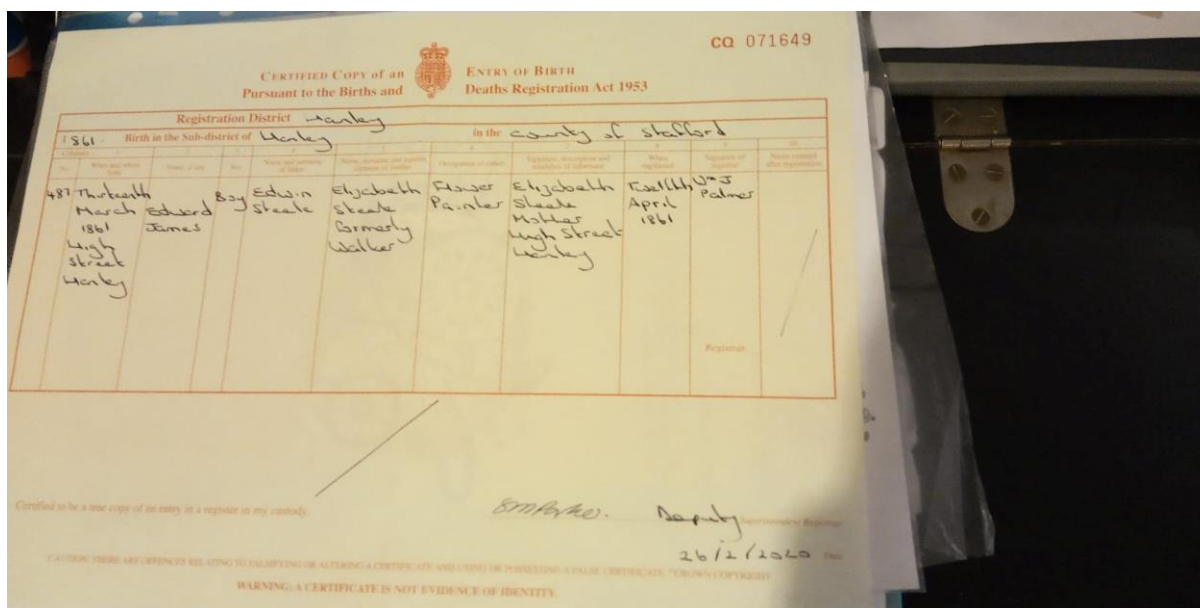 CQ 071649
CERTIFIED COPY of an ENTRY OF BIRTH
Pursuant to the Births and Deaths Registration Act 1953
Registration District Hanley
1861. Birth in the Sub-district of Hanley in the County of Stafford
Columns 1 2 3 4 5 6 7 8 9 10
No. When and where born Name, if any Sex Name and surname of father Name, surname and maiden surname of mother Occupation of father Signature, description and residence of informant When registered Signature of registrar Name entered after registration
487 Thirteenth Boy Edwin Elizabeth Flower Elizabeth Twelfth Wm J
March Edward Steele Steele Painter Steele April Palmer
1861 James formerly Mother 1861
High Walker High Street
Street Hanley
Hanley
Registrar
Certified to be a true copy of an entry in a register in my custody.
Deputy Superintendent Registrar
26/2/2020 Date
CAUTION: THERE ARE OFFENCES RELATING TO FALSIFYING OR ALTERING A CERTIFICATE AND USING OR POSSESSING A FALSE CERTIFICATE. ©CROWN COPYRIGHT
WARNING: A CERTIFICATE IS NOT EVIDENCE OF IDENTITY.